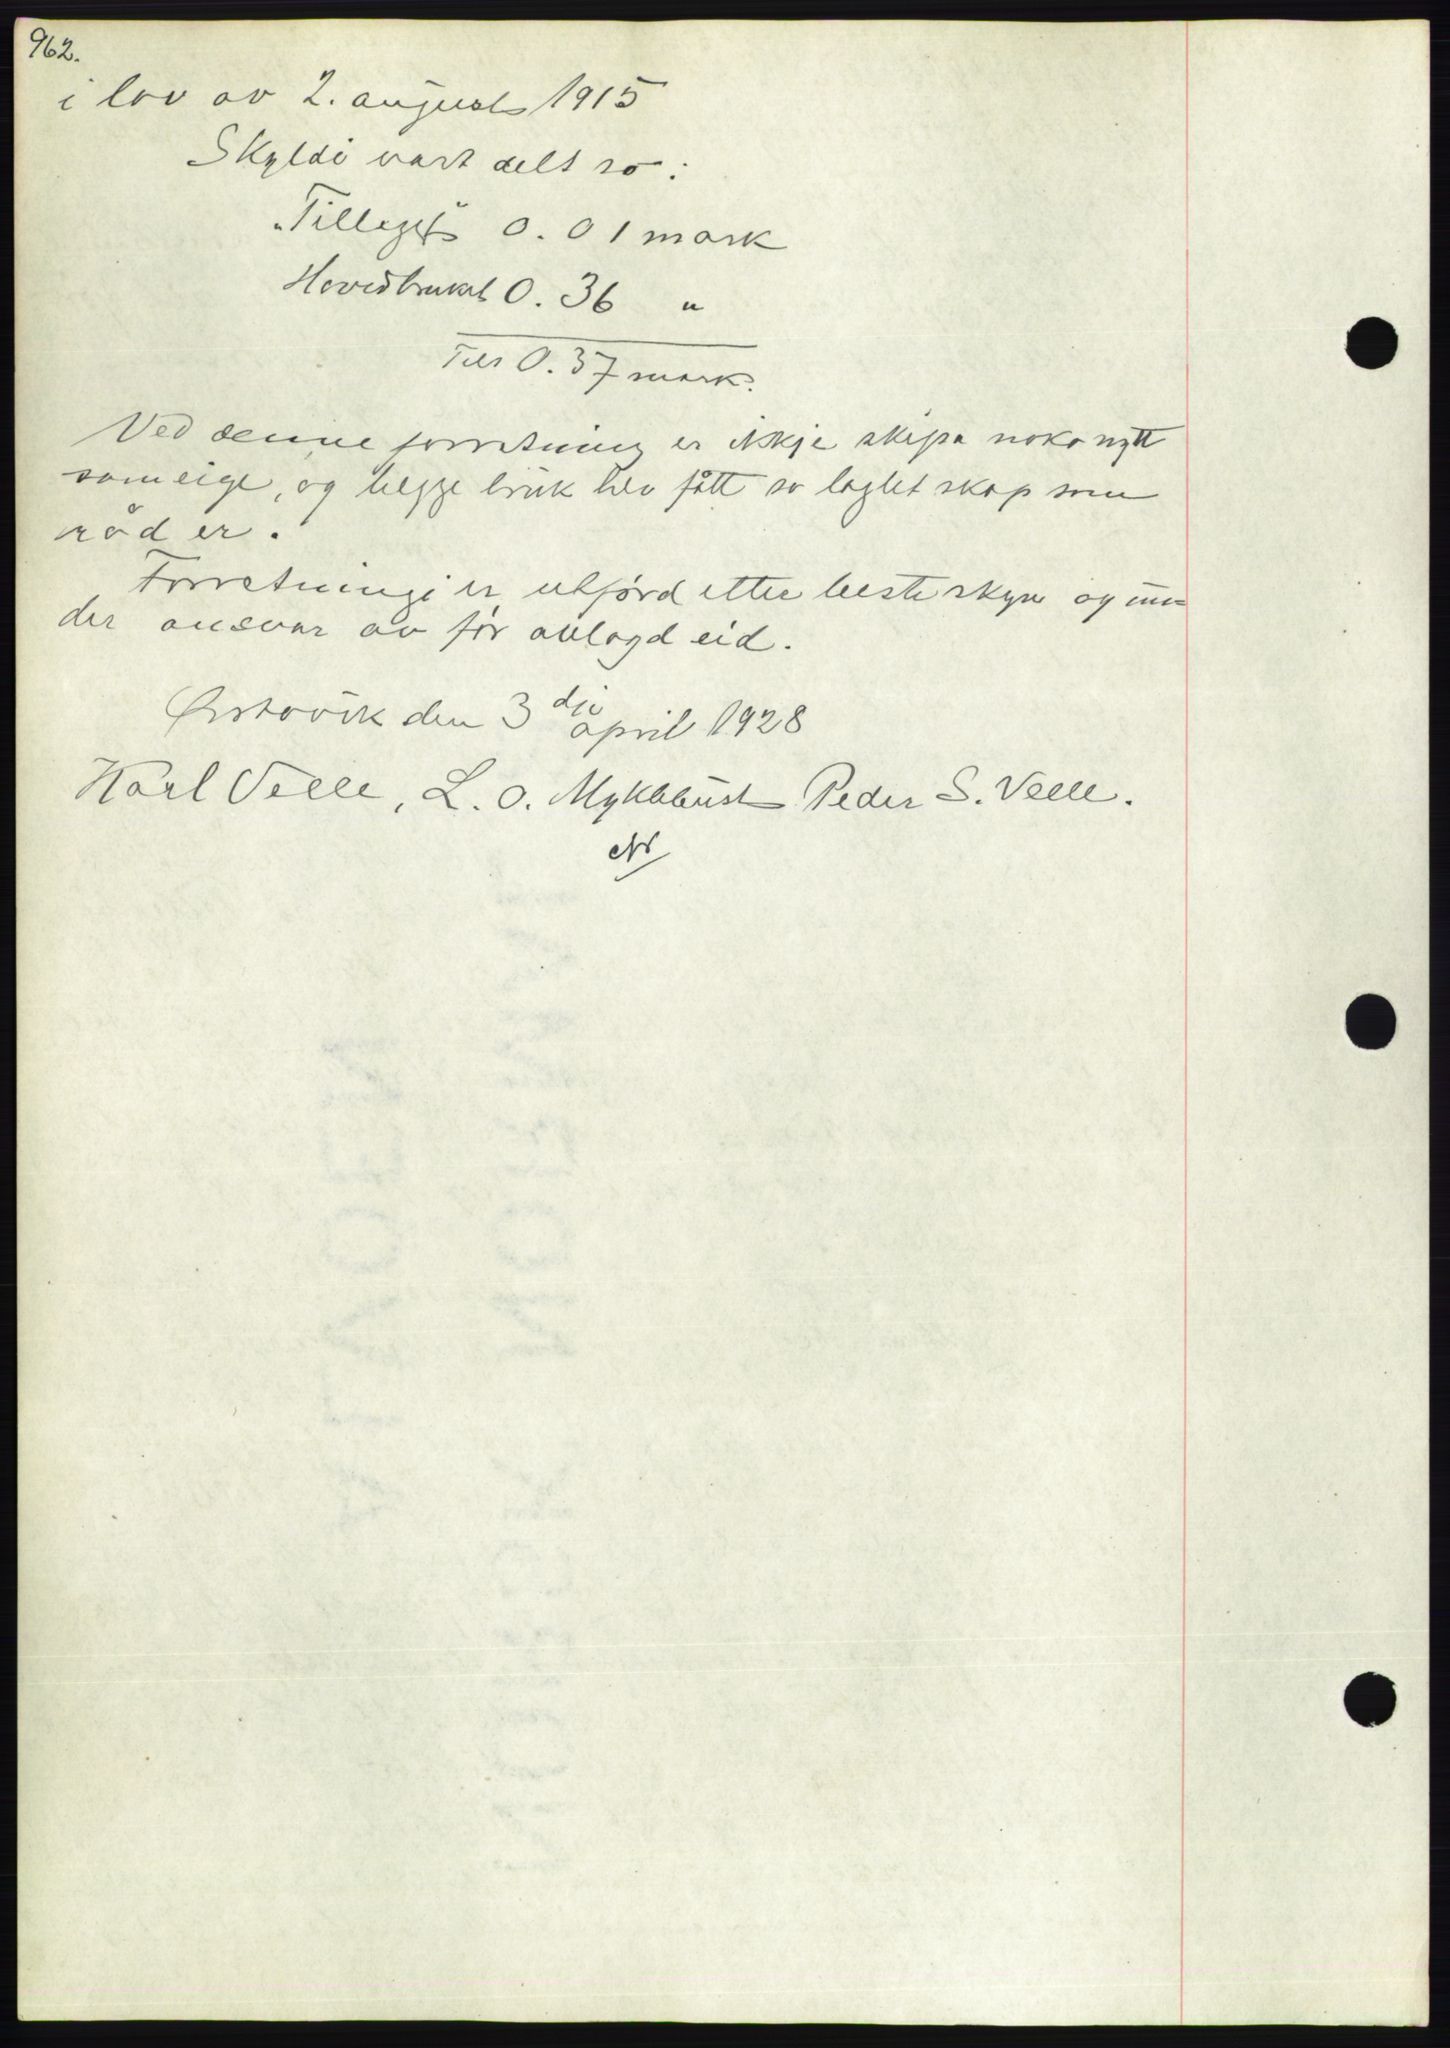 962.
i lov av 2. august 1915
Skyldi vart delt so:
"Tillegget" 0.01 mark
Hovedbruket 0.36 "
Tils 0.37 mark.
Ved denne forretning er ikkje skipa noko nytt
sameige, og begge bruk hev fått so laglet skap som
råd er.
Forretningi er utførd etter beste skyn og un-
der ansvar av før avlagd eid.
Ørstavik den 3dje april 1928
Karl Velle, L. O. Myklebust Peder S. Velle.